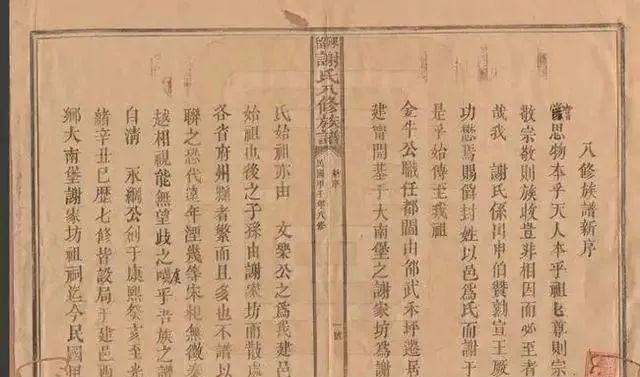 八修族譜新序
嘗思物本乎天人本乎祖尊則宗
敬宗敬則族收豈非相因而必至者
哉我 謝氏係出申伯贊勷宣王厥
功懋焉賜留封姓以邑爲氏而謝于
是乎始傳至我祖
金牛公職任都閫由邵武禾坪遷居
建甯開基于大南堡之謝家坊爲謝
謝氏八修族譜 新序 民國甲子年八修 一號
氏始祖亦由 文樂公之爲我建邑
始祖也後之子孫由謝家坊而散處
各省府州縣者繁而且多也不譜以
聯之恐代遠年湮幾等宋杞無徵秦
越相視能無望歧之嘆乎吾族之譜
自清 永綱公創于康熙癸亥至光
緒辛丑已歷七修皆設局于建邑西
鄉大南堡謝家坊祖祠迄今民國甲